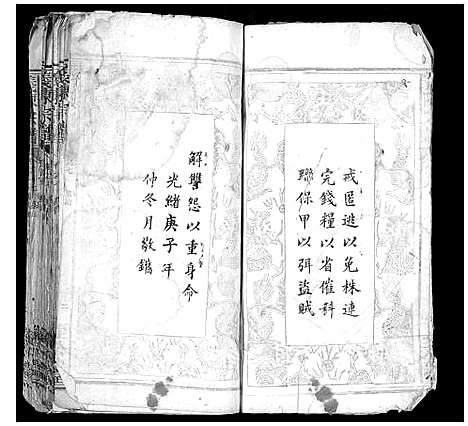 戒匿逃以免株連
完錢糧以省催科
聯保甲以弭盜賊
解讐怨以重身命
光緒庚子年
仲冬月敬鐫